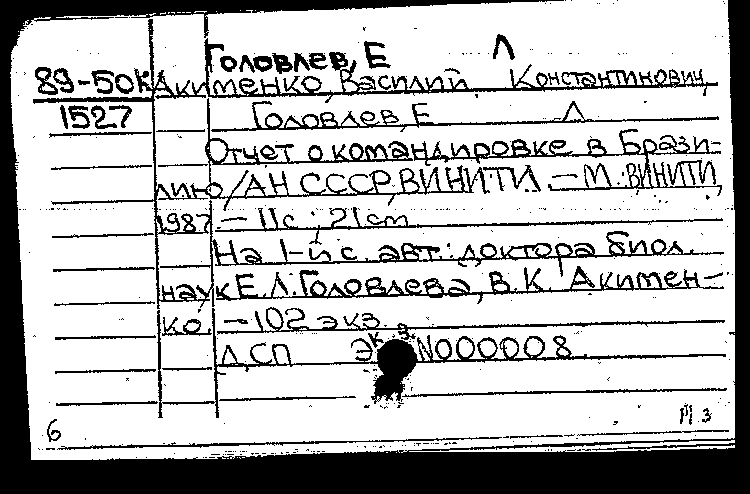 Головлев, Е Л
89-50к Акименко, Василий Константинович,
1527 Головлев, Е Л
Отчет о командировке в Брази-
лию/АН СССР, ВИНИТИ. — М.: ВИНИТИ,
1987 — 11с ; 21 cm
На 1-й с. авт.: доктора биол.
наук Е.Л. Головлева, В.К. Акимен-
ко. — 102 экз
ДСП Экз N000008.
6 М 3